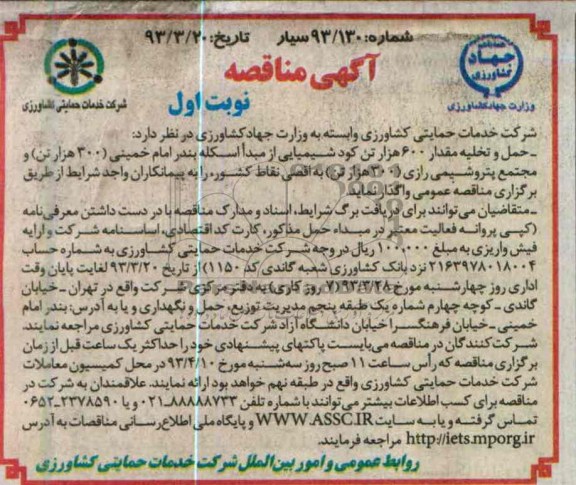 شماره: ۹۳/۱۳۰ سیار تاریخ: ۹۳/۳/۲۰
آگهی مناقصه
نوبت اول
جهاد کشاورزی
وزارت جهاد کشاورزی
شرکت خدمات حمایتی کشاورزی
شرکت خدمات حمایتی کشاورزی وابسته به وزارت جهاد کشاورزی در نظر دارد:
ـ حمل و تخلیه مقدار ۶۰۰ هزار تن کود شیمیایی از مبدأ اسکله بندر امام خمینی (۳۰۰ هزار تن) و
مجتمع پتروشیمی رازی (۳۰۰ هزار تن) به اقصی نقاط کشور، را به پیمانکاران واجد شرایط از طریق
برگزاری مناقصه عمومی واگذار نماید.
ـ متقاضیان می‌توانند برای دریافت برگ شرایط، اسناد و مدارک مناقصه با در دست داشتن معرفی‌نامه
(کپی پروانه فعالیت معتبر در مبداء حمل مذکور، کارت کد اقتصادی، اساسنامه شرکت و ارایه
فیش واریزی به مبلغ ۱۰۰,۰۰۰ ریال در وجه شرکت خدمات حمایتی کشاورزی به شماره حساب
۲۱۶۳۹۷۸۰۱۸۰۰۴ نزد بانک کشاورزی شعبه گاندی کد ۱۱۵۰) از تاریخ ۹۳/۳/۲۰ لغایت پایان وقت
اداری روز چهارشنبه مورخ ۹۳/۳/۲۸ (۷ روز کاری) به دفتر مرکزی شرکت واقع در تهران ـ خیابان
گاندی ـ کوچه چهارم شماره یک طبقه پنجم مدیریت توزیع، حمل و نگهداری و یا به آدرس: بندر امام
خمینی ـ خیابان فرهنگسرا خیابان دانشگاه آزاد شرکت خدمات حمایتی کشاورزی مراجعه نمایند.
شرکت‌کنندگان در مناقصه می‌بایست پاکتهای پیشنهادی خود را حداکثر یک ساعت قبل از زمان
برگزاری مناقصه که رأس ساعت ۱۱ صبح روز سه‌شنبه مورخ ۹۳/۴/۱۰ در محل کمیسیون معاملات
شرکت خدمات حمایتی کشاورزی واقع در طبقه نهم خواهد بود ارائه نمایند. علاقمندان به شرکت در
مناقصه برای کسب اطلاعات بیشتر می‌توانند با شماره تلفن ۸۸۸۸۸۷۳۳-۰۲۱ و یا ۲۳۷۸۵۹۰-۰۶۵۲
تماس گرفته و یا به سایت WWW.ASSC.IR و پایگاه ملی اطلاع‌رسانی مناقصات به آدرس
http://iets.mporg.ir مراجعه فرمایند.
روابط عمومی و امور بین‌الملل شرکت خدمات حمایتی کشاورزی